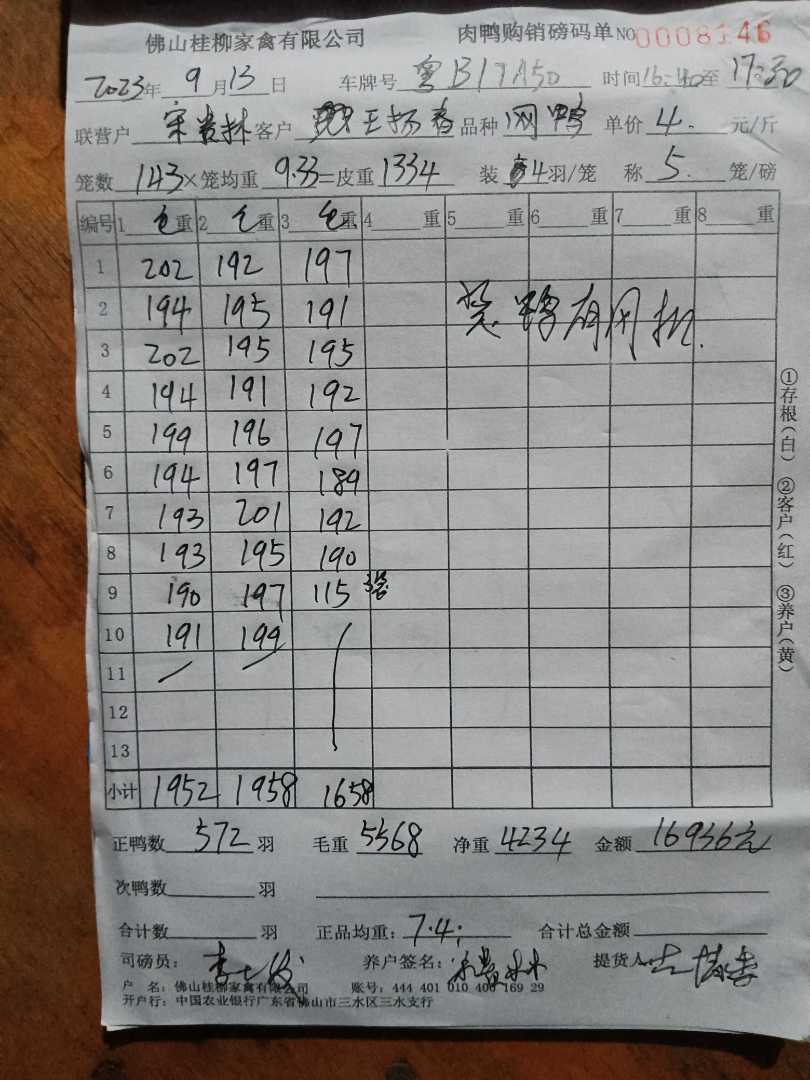 佛山桂柳家禽有限公司 肉鸭购销磅码单 NO 0008146
2023年 9月13日 车牌号 粤B17A50 时间16:40至17:30
联营户 宋贵林 客户 王扬春 品种 网鸭 单价 4. 元/斤
笼数 143×笼均重 9.33=皮重 1334 装 4羽/笼 称 5. 笼/磅
编号 1 毛重 2 毛重 3 毛重 4 重 5 重 6 重 7 重 8 重
1 202 192 197
2 194 195 191
3 202 195 195
4 194 191 192
5 199 196 197
6 194 197 189
7 193 201 192
8 193 195 190
9 190 197 115 3笼
10 191 199
11
12
13
小计 1952 1958 1658
鸭有网机.
①存根(白) ②客户(红) ③养户(黄)
正鸭数 572 羽 毛重 5568 净重 4234 金额 16936元
次鸭数 羽
合计数 羽 正品均重: 7.4 合计总金额
司磅员: 养户签名: 宋贵林 提货人
户 名: 佛山桂柳家禽有限公司 账号: 444 401 010 400 169 29
开户行: 中国农业银行广东省佛山市三水区三水支行